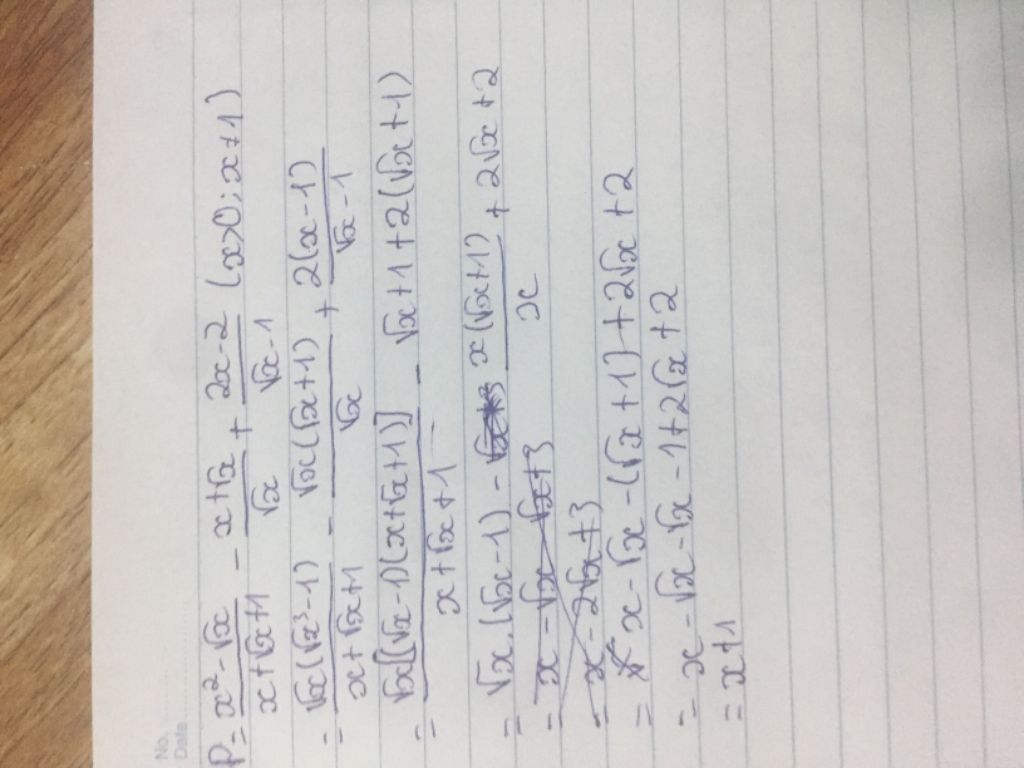 No.
Date
P = \frac{x² - √x}{x + √x + 1} - \frac{x + √x}{√x} + \frac{2x - 2}{√x - 1} (x > 0; x ≠ 1)
= \frac{√x(√x³ - 1)}{x + √x + 1} - \frac{√x(√x + 1)}{√x} + \frac{2(x - 1)}{√x - 1}
= \frac{√x[(√x - 1)(x + √x + 1)]}{x + √x + 1} - √x + 1 + 2(√x + 1)
= √x.(√x - 1) - \frac{x(√x + 1)}{x} + 2√x + 2
= x - √x - √x + 3
= x - 2√x + 3
= x - √x - (√x + 1) + 2√x + 2
= x - √x - √x - 1 + 2√x + 2
= x + 1